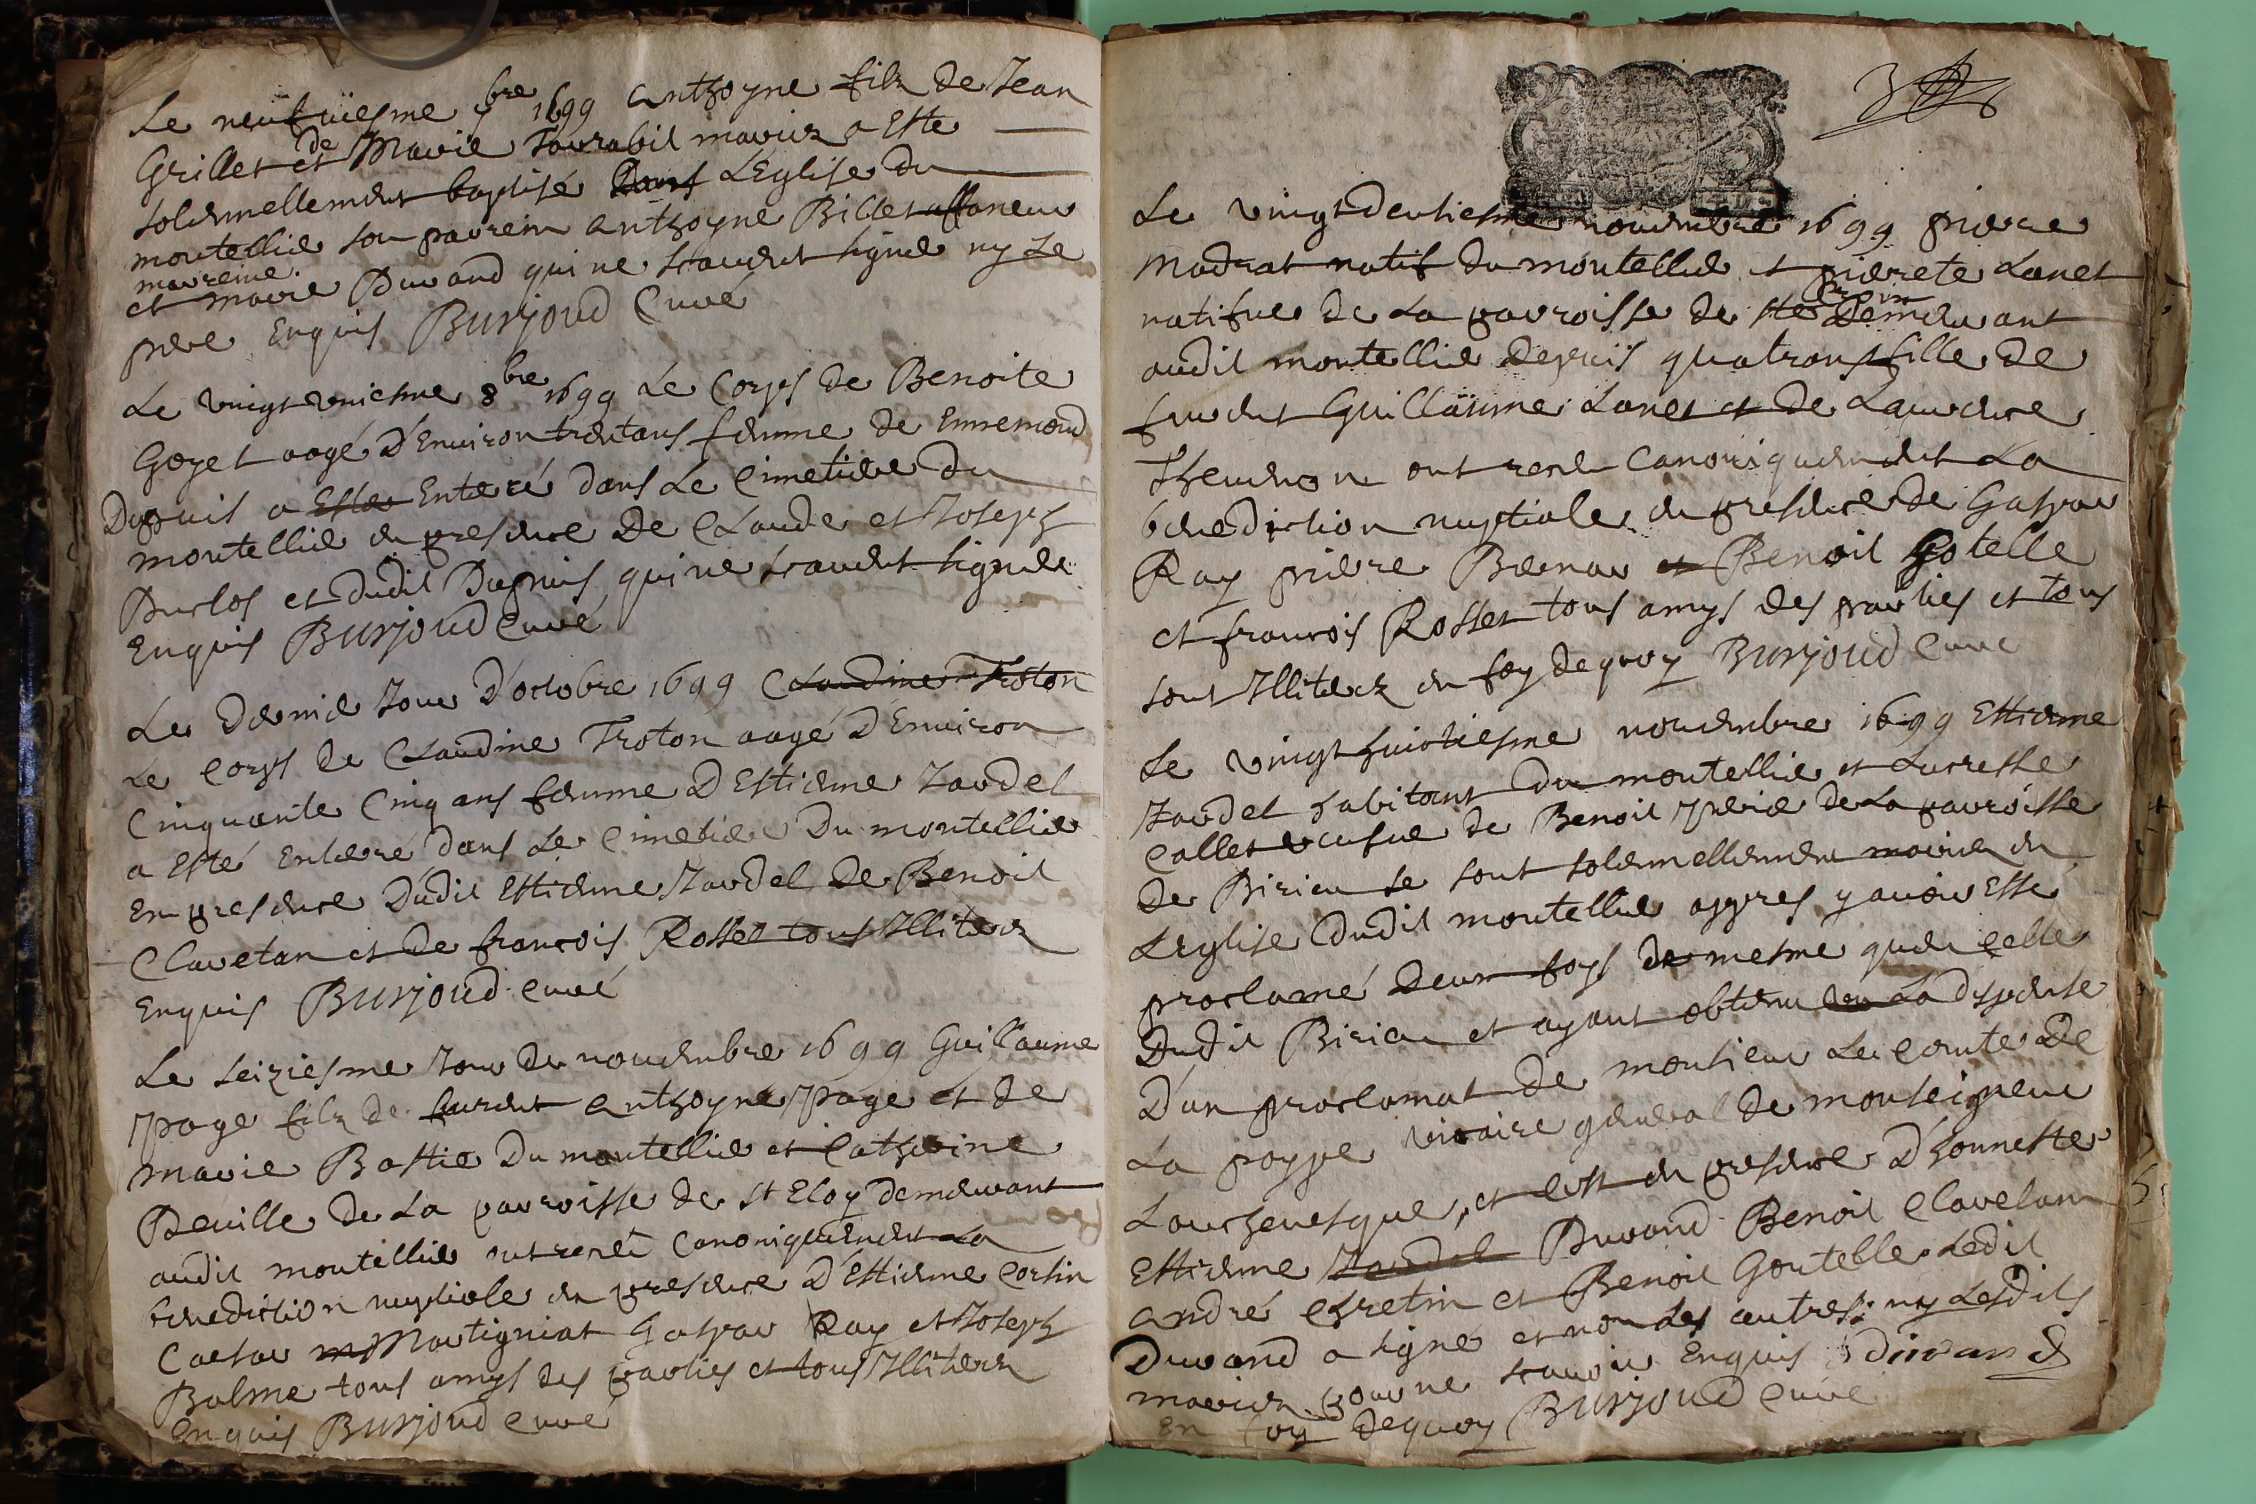 Le neufuiesme 9bre 1699 anthoyne filz de Jean
Grillet et de Marie Tavrabil mariez a Este
solemnellement baptisé Dans LEglise du
montellier son parrein anthoyne Billet affaneur
marreine
et marie Durand qui ne scauent signer ny le
pere Enquis Burjoud Curé
Le vingt vniesme 8bre 1699 Le Corps de Benoite
Goyet aagé d'Enuiron trentans femme de Ennemond
Dupuis a Estee Enterré dans Le Cimetiere du
montellier en presence De Claude et Joseph
Duclos et dudit Dupuis qui ne scauent signer
Enquis Burjoud Curé
Le Dernier Jour D'octobre 1699 Claudine Troton
Le Corps de Claudine Troton aagé D'Enuiron
Cinquante Cinq ans femme D Estienne Jandel
a Esté Enterré dans Le Cimetiere Du montellier
En presence Dudit Estienne Jandel De Benoit
Clavetan et de francois Rosset tous Illiterez
Enquis Burjoud Curé
Le seiziesme Jour de nouembre 1699 Guillaume
Page filz de furent anthoyne Page et de
marie Bastie Du montellier et Catherine
Deuille de La parroisse de St Eloy demeurant
audit montellier ont receu Canoniquement La
benediction nuptiale en presence D'Estienne Corsin
Caesar Martigniat Gaspar Ray et Joseph
Balme tous amys des parties et tous Illiterez
Enquis Burjoud Curé
Le vingtdeusiesme nouembre 1699 pierre
Modrat natif du montellier et pierrete Lanet
natifue de La parroisse de Ste Croix Demeurant
audit montellier Depuis quatrans fille de
furent Guillaume Lanet et de Laurence
Theuenon ont receu Canoniquement La
benediction nuptiale en presence de Gaspar
Ray pierre Bernar et Benoit Gotelle
et francois Rosset tous amys des parties et tous
sont Illiterez en foy dequoy Burjoud Curé
Le vingt huictiesme nouembre 1699 Estienne
Jandel habitant Du montellier et Lucresse
Collet veufue de Benoit Perier de La parroisse
De Birieu se sont solemnellement mariez en
L'eglise dudit montellier appres y auoir Esté
proclamé Deux foys de mesme qu'en celle
Dudit Birieu et ayant obtenu La dispense
D'un proclamat de monsieur Le Comte De
La poype vicaire general de monseigneur
L'archeuesque, et cest en presence D'honneste
Estienne Jandel Durand Benoit Clavetan
andré Chretin et Benoit Goutelle Ledit
Durand a signé et non Les autres ny Lesdits
mariez pour ne scauoir Enquis durand
En foy Dequoy Burjoud Curé